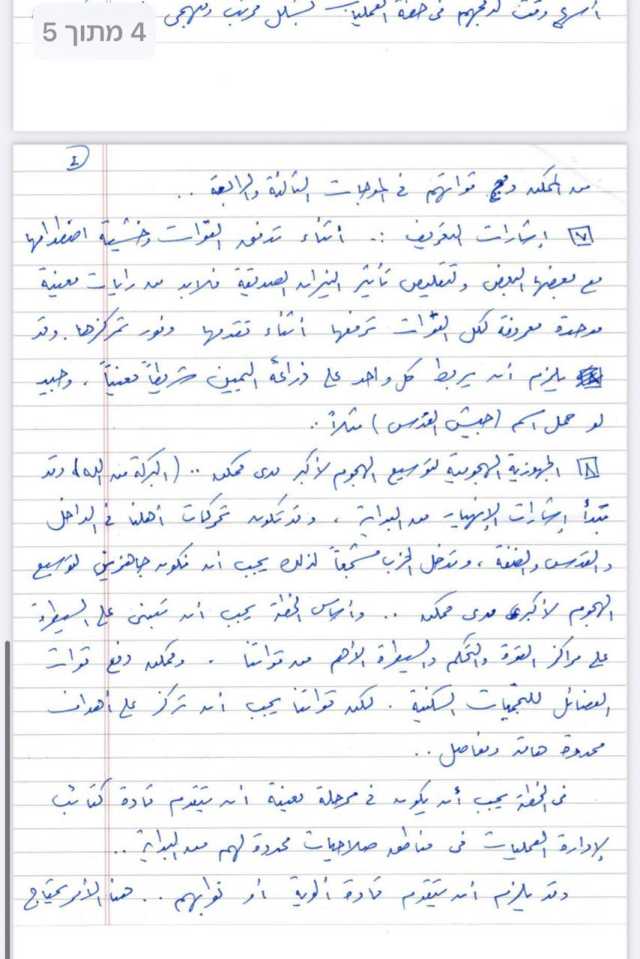 أسرع وقت لدمجهم في خطة العمليات بشكل مرتب ومنهجي
4 מתוך 5
من الممكن دفع قواتهم في الموجات الثالثة والرابعة ..
٧ إشارات التعريف :. أثناء تدفق القوات وخشية اصطدامها
مع بعضها البعض ولتقليص تأثير النيران الصديقة فلابد من رايات معينة
موحدة معروفة لكل القوات ترفعها أثناء تقدمها وفور تمركزها. وقد
يلزم أن يربط كل واحد على ذراعه اليمين شريطاً معيناً ، وحبيد
لو حمل اسم (جيش القدس) مثلاً ..
٨ الجهوزية الهجومية لتوسيع الهجوم لأكبر مدى ممكن .. (البركة من الله) وقد
تبدأ إشارات الإنهيار من البداية ، وقد تكون تحركات أهلنا في الداخل
والقدس والضفة ، وتدخل الحزب مشجعاً لذلك يجب أن نكون جاهزين لتوسيع
الهجوم لأكبر مدى ممكن .. وأساس الخطة يجب أن تبنى على السيطرة
على مراكز القوة والتحكم والسيطرة الأهم من قواتنا . وممكن دفع قوات
الفصائل للتجمعات السكنية . لكن قواتنا يجب أن تركز على أهداف
محدودة هامة ومفاصل ..
في الخطة يجب أن يكون في مرحلة معينة أن يتقدم قادة كتائب
لإدارة العمليات في مناطق صلاحيات محددة لهم من البداية ..
وقد يلزم أن يتقدم قادة ألوية أو نوابهم .. هذا الأمر يحتاج